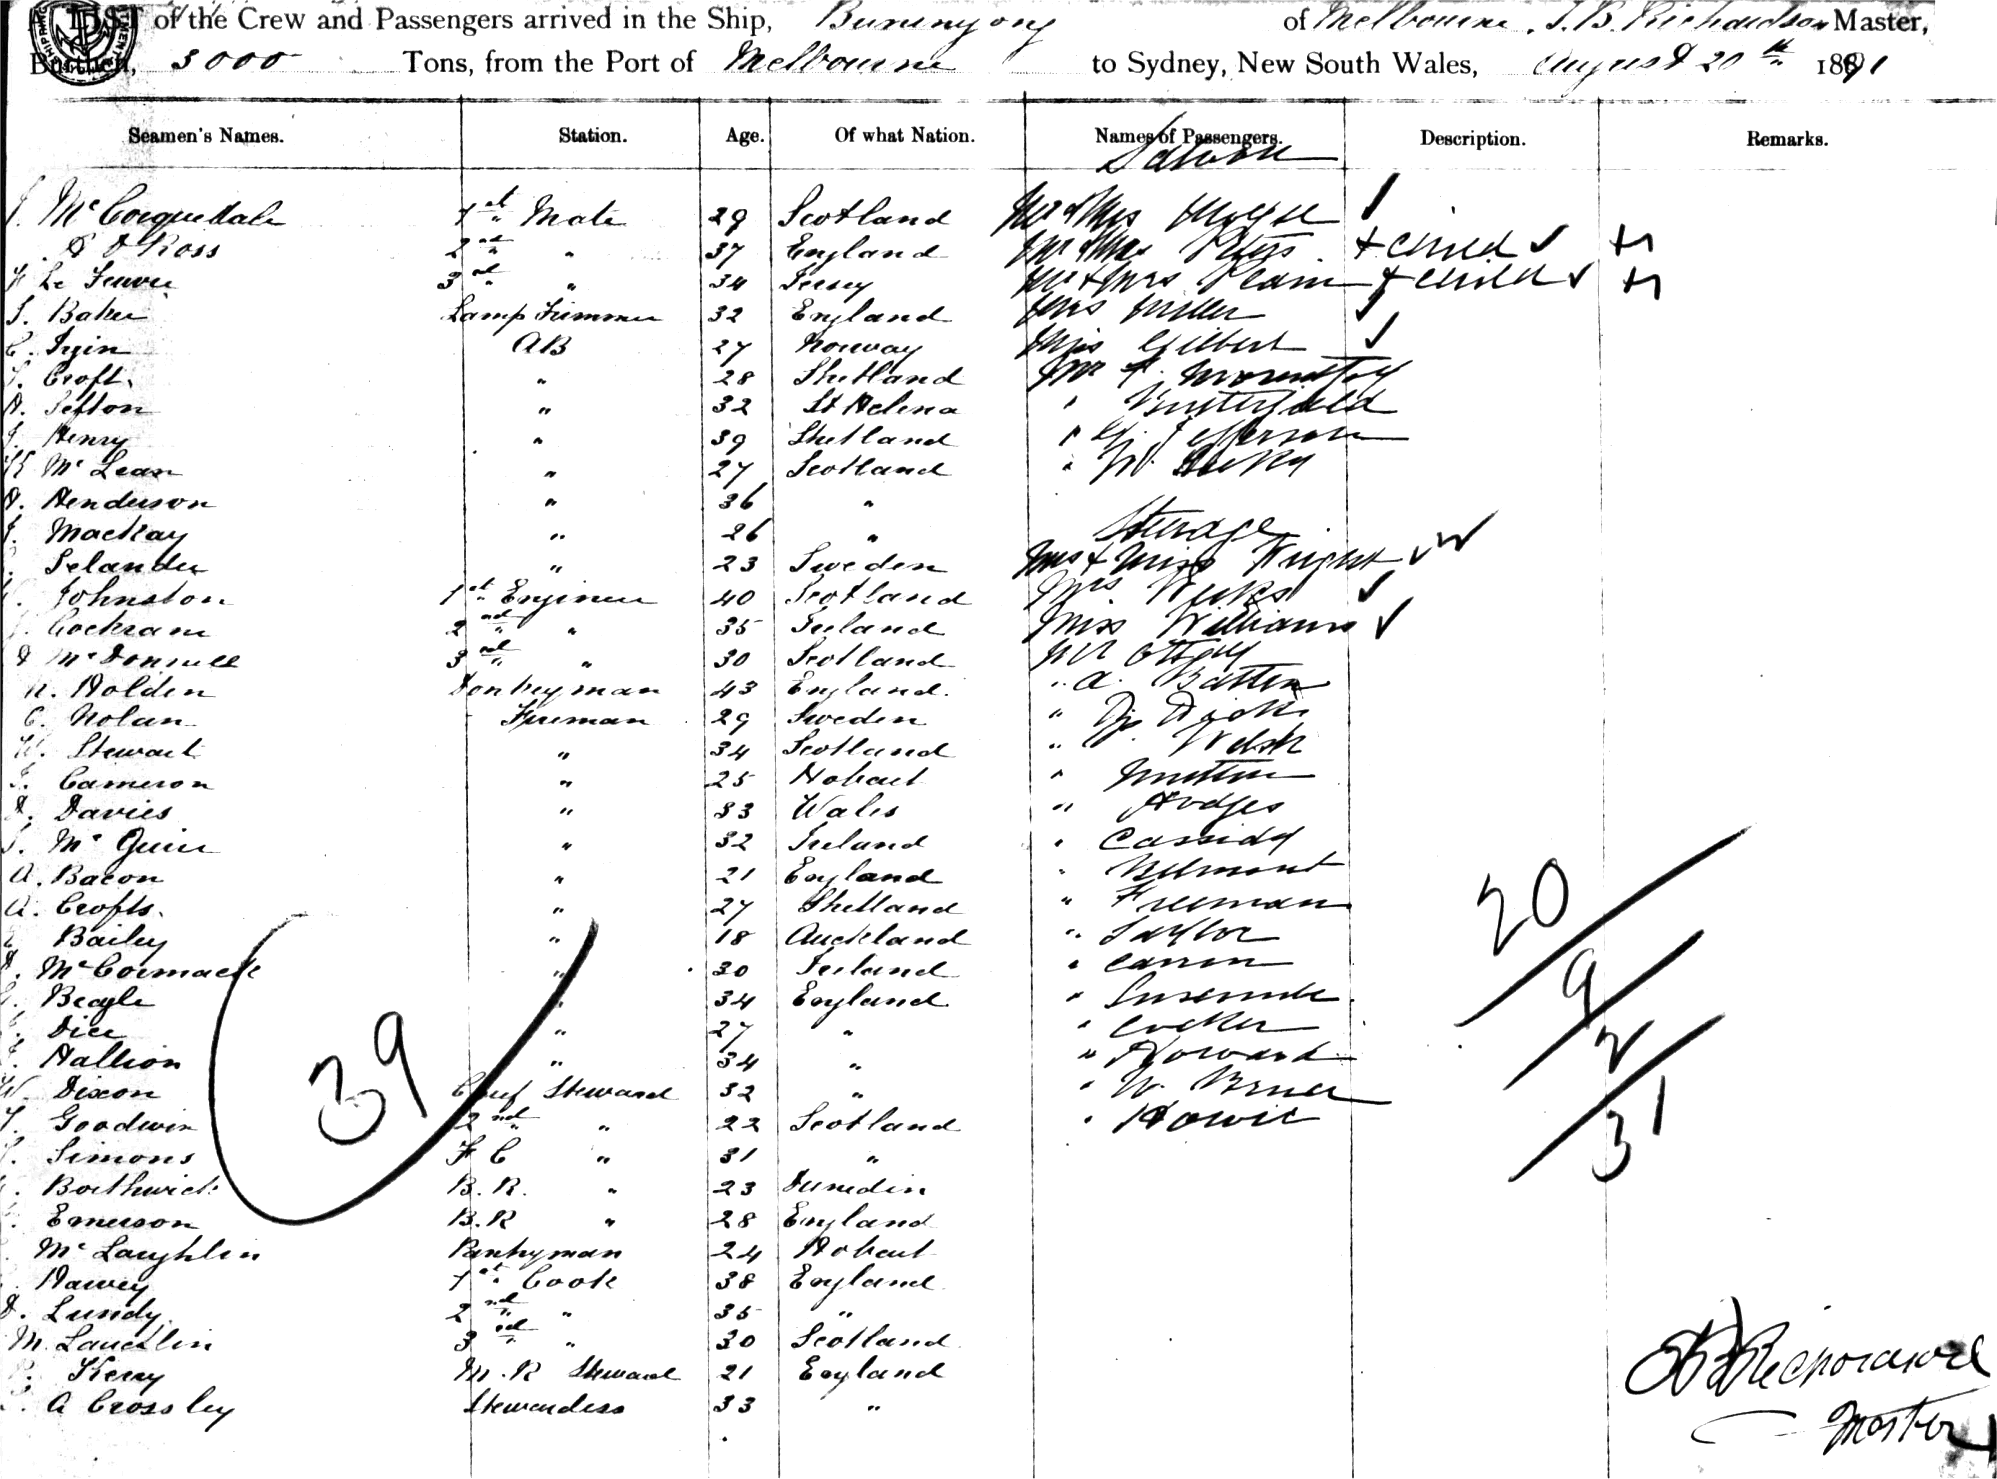 LIST of the Crew and Passengers arrived in the Ship, Buninyong of Melbourne, J. B. Richardson Master,
Burthen, 3000 Tons, from the Port of Melbourne to Sydney, New South Wales, August 20th 1891
Seamen's Names. Station. Age. Of what Nation. Names of Passengers. Description. Remarks.
Saloon
J. McCorquedale 1st Mate 29 Scotland Mr & Mrs
D D Ross 2nd " 37 England Mr & Mrs Peters + child
Le Feuvre 3rd " 34 Jersey Mr & Mrs + child
S. Baker Lamp Trimmer 32 England Mrs Miller
C. AB 27 Norway Miss Gilbert
Croft " 28 Shetland Mr
Sefton " 32 St Helena " Butterfield
J. Henry " 39 Shetland " G. Jefferson
McLean " 27 Scotland " W.
Henderson " 36 "
J. Mackay " 26 " Steerage
Selander " 23 Sweden Mrs & Miss Wright
Johnston 1st Engineer 40 Scotland Mrs Weeks
Cochrane 2nd " 35 Ireland Miss Williams
D McDonnell 3rd " 30 Scotland Mr
R. Holden Donkeyman 43 England " A. Batten
C. Nolan Fireman 29 Sweden "
W. Stewart " 34 Scotland " Welsh
Cameron " 25 Hobart "
D. Davies " 33 Wales " Hodges
Mc Guire " 32 Ireland " Cassidy
A. Bacon " 21 England " Belmont
A. Crofts " 27 Shetland " Freeman
Bailey " 18 Auckland " Taylor
McCormack " 30 Ireland "
Beagle " 34 England "
Dice " 27 " " Cocker
Hallion " 34 " " Howard
W. Dixon Chief Steward 32 " " W.
Goodwin 2nd " 22 Scotland " Howie
Simons F C " 31 "
Borthwick B. R. " 23 Dunedin
Emerson B. R " 28 England
McLaughlin Pantryman 24 Hobart
Harvey 1st Cook 38 England
D. Lundy 2nd " 35 "
M. Lauchlin 3rd " 30 Scotland
Kerry M. R Steward 21 England
A Crossley Stewardess 33 "
39
20
9
2
31
J B Richardson
Master